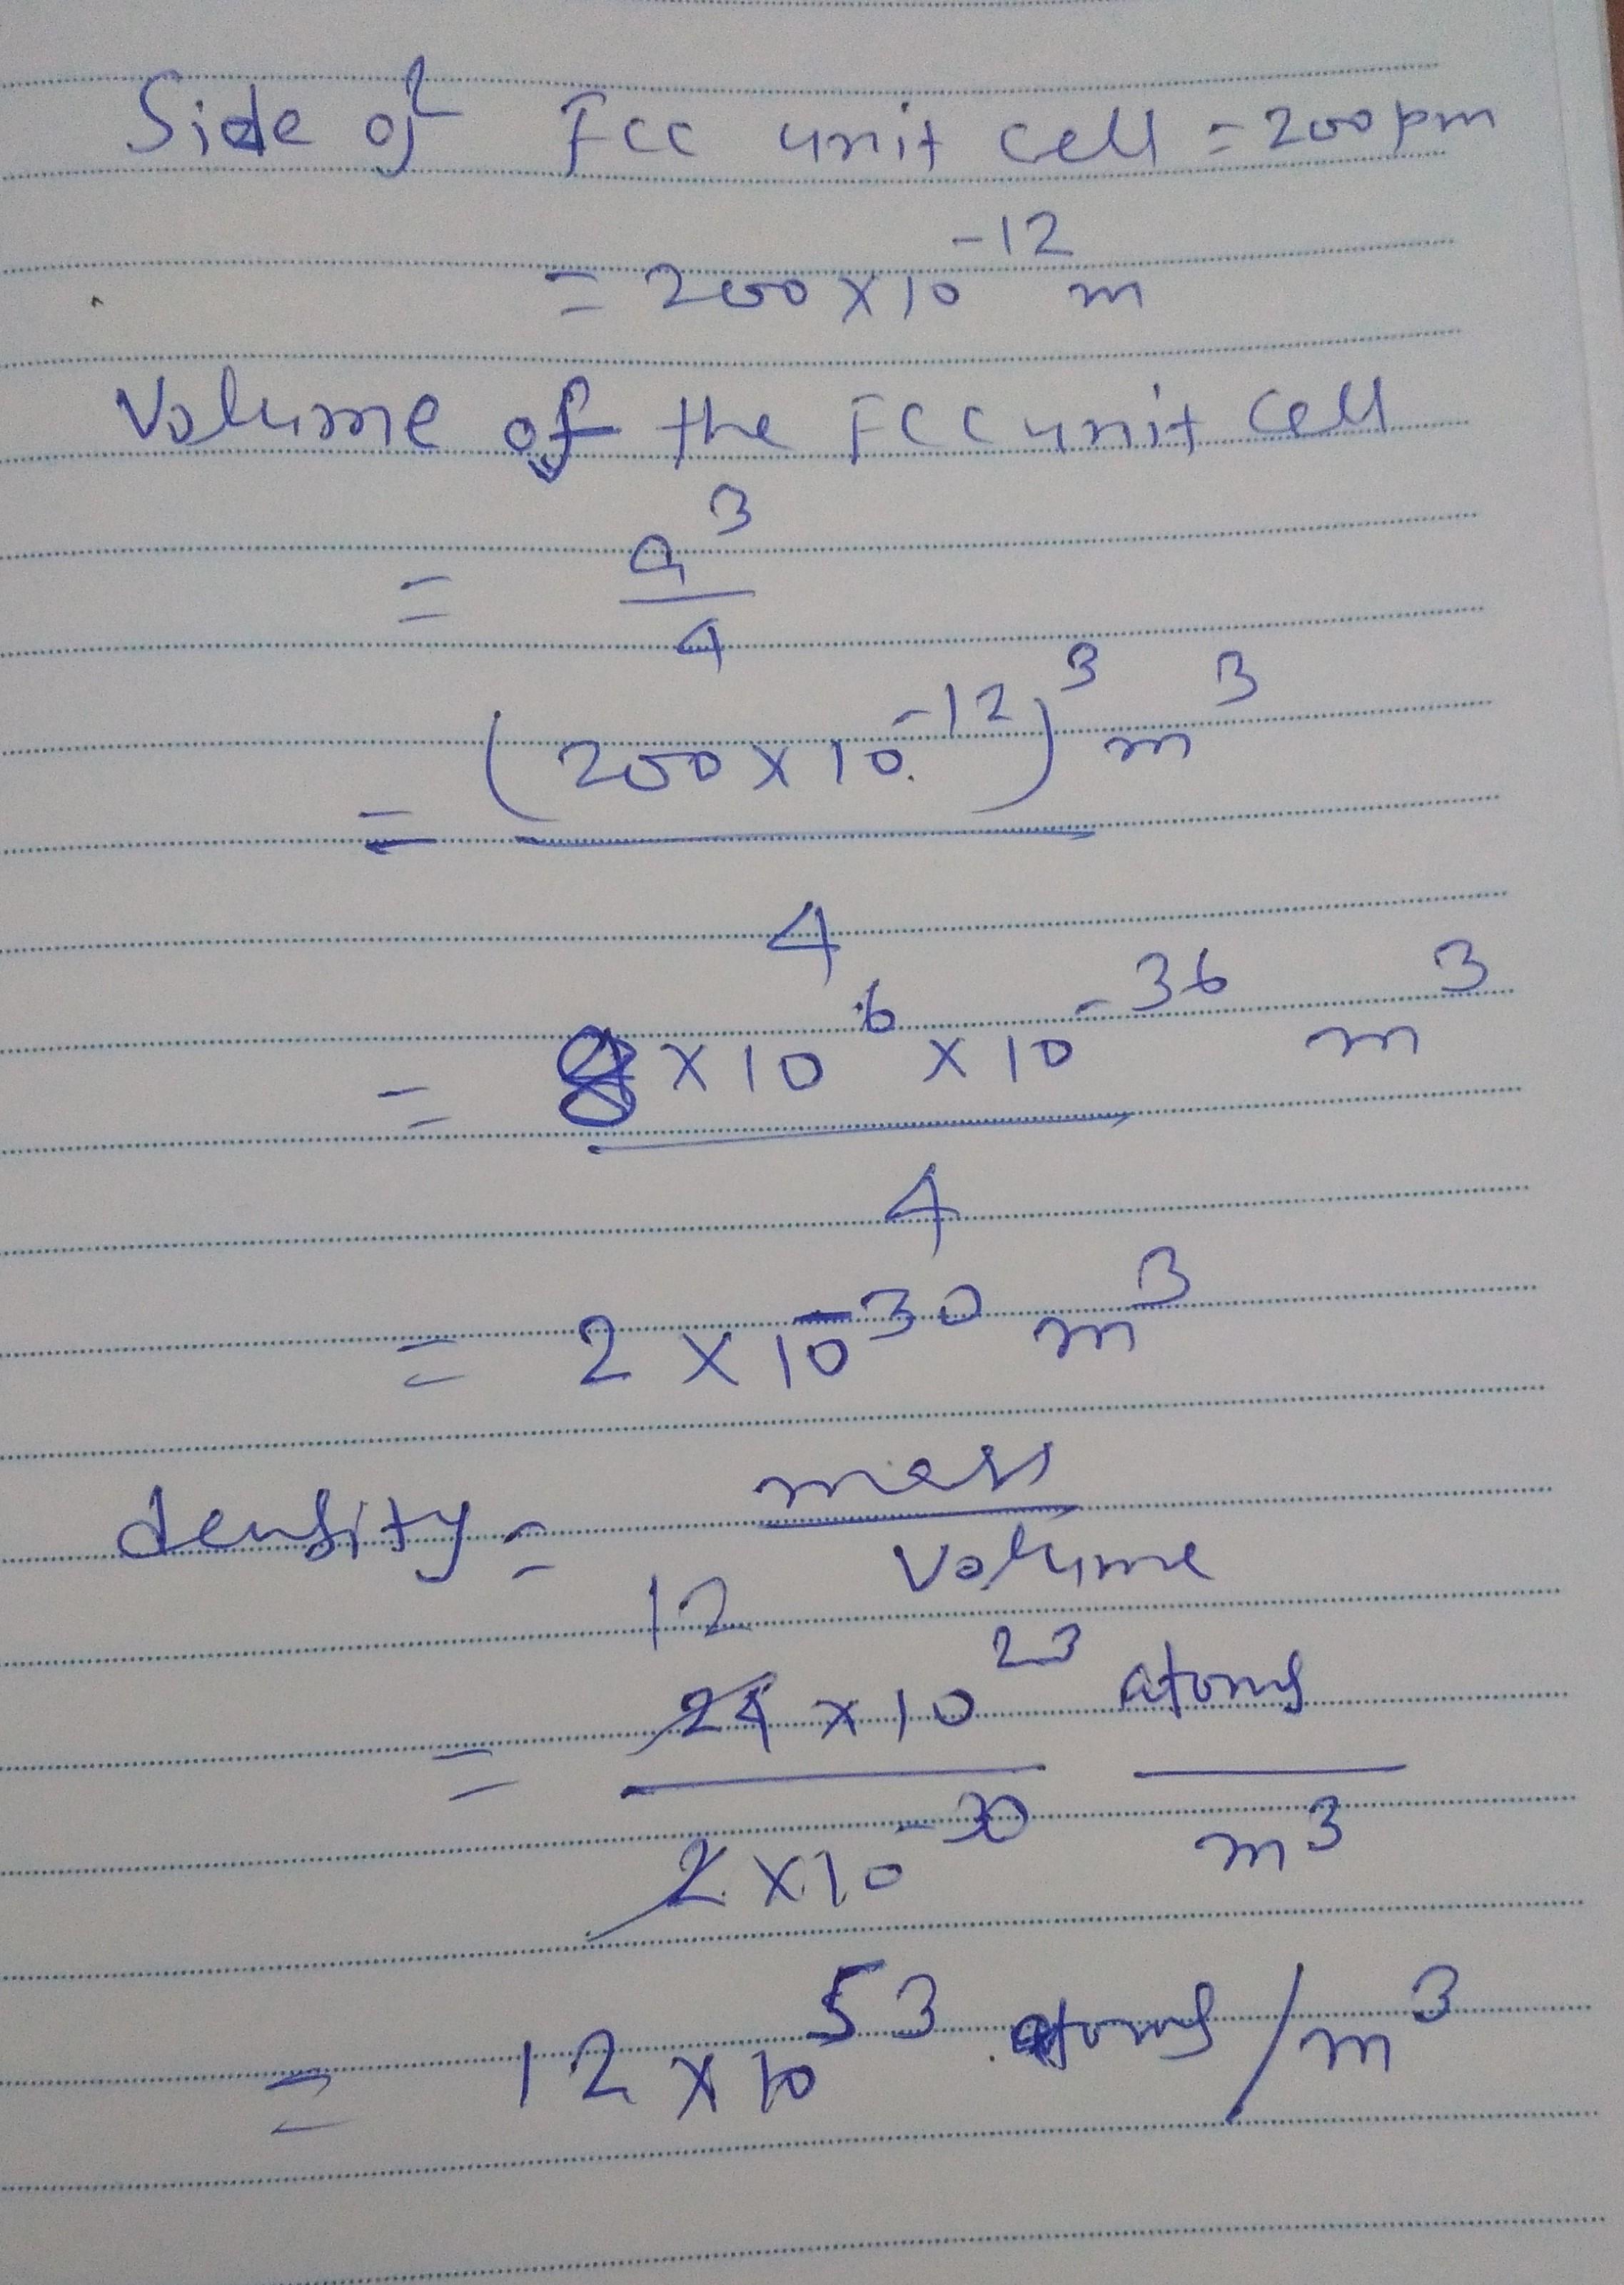 Side of Fcc unit cell = 200pm
= 200 × 10⁻¹² m
Volume of the FCC unit cell
= a³/4
= (200 × 10⁻¹²)³ m³ / 4
= 8 × 10⁶ × 10⁻³⁶ m³ / 4
= 2 × 10⁻³⁰ m³
density = mass / Volume
12
= 24 × 10²³ atoms / 2 × 10⁻³⁰ m³
= 12 × 10⁵³ atoms / m³